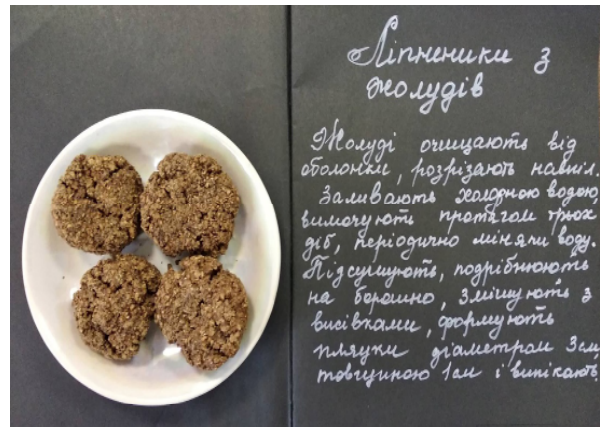 Ліпненики з
жолудів
Жолуді очищають від
оболонки, розрізають навпіл.
Заливають холодною водою,
вимочують протягом трьох
діб, періодично міняти воду.
Підсушують, подрібнюють
на борошно, змішують з
висівками, формують
пляцки діаметром 3см,
товщиною 1см і випікають.